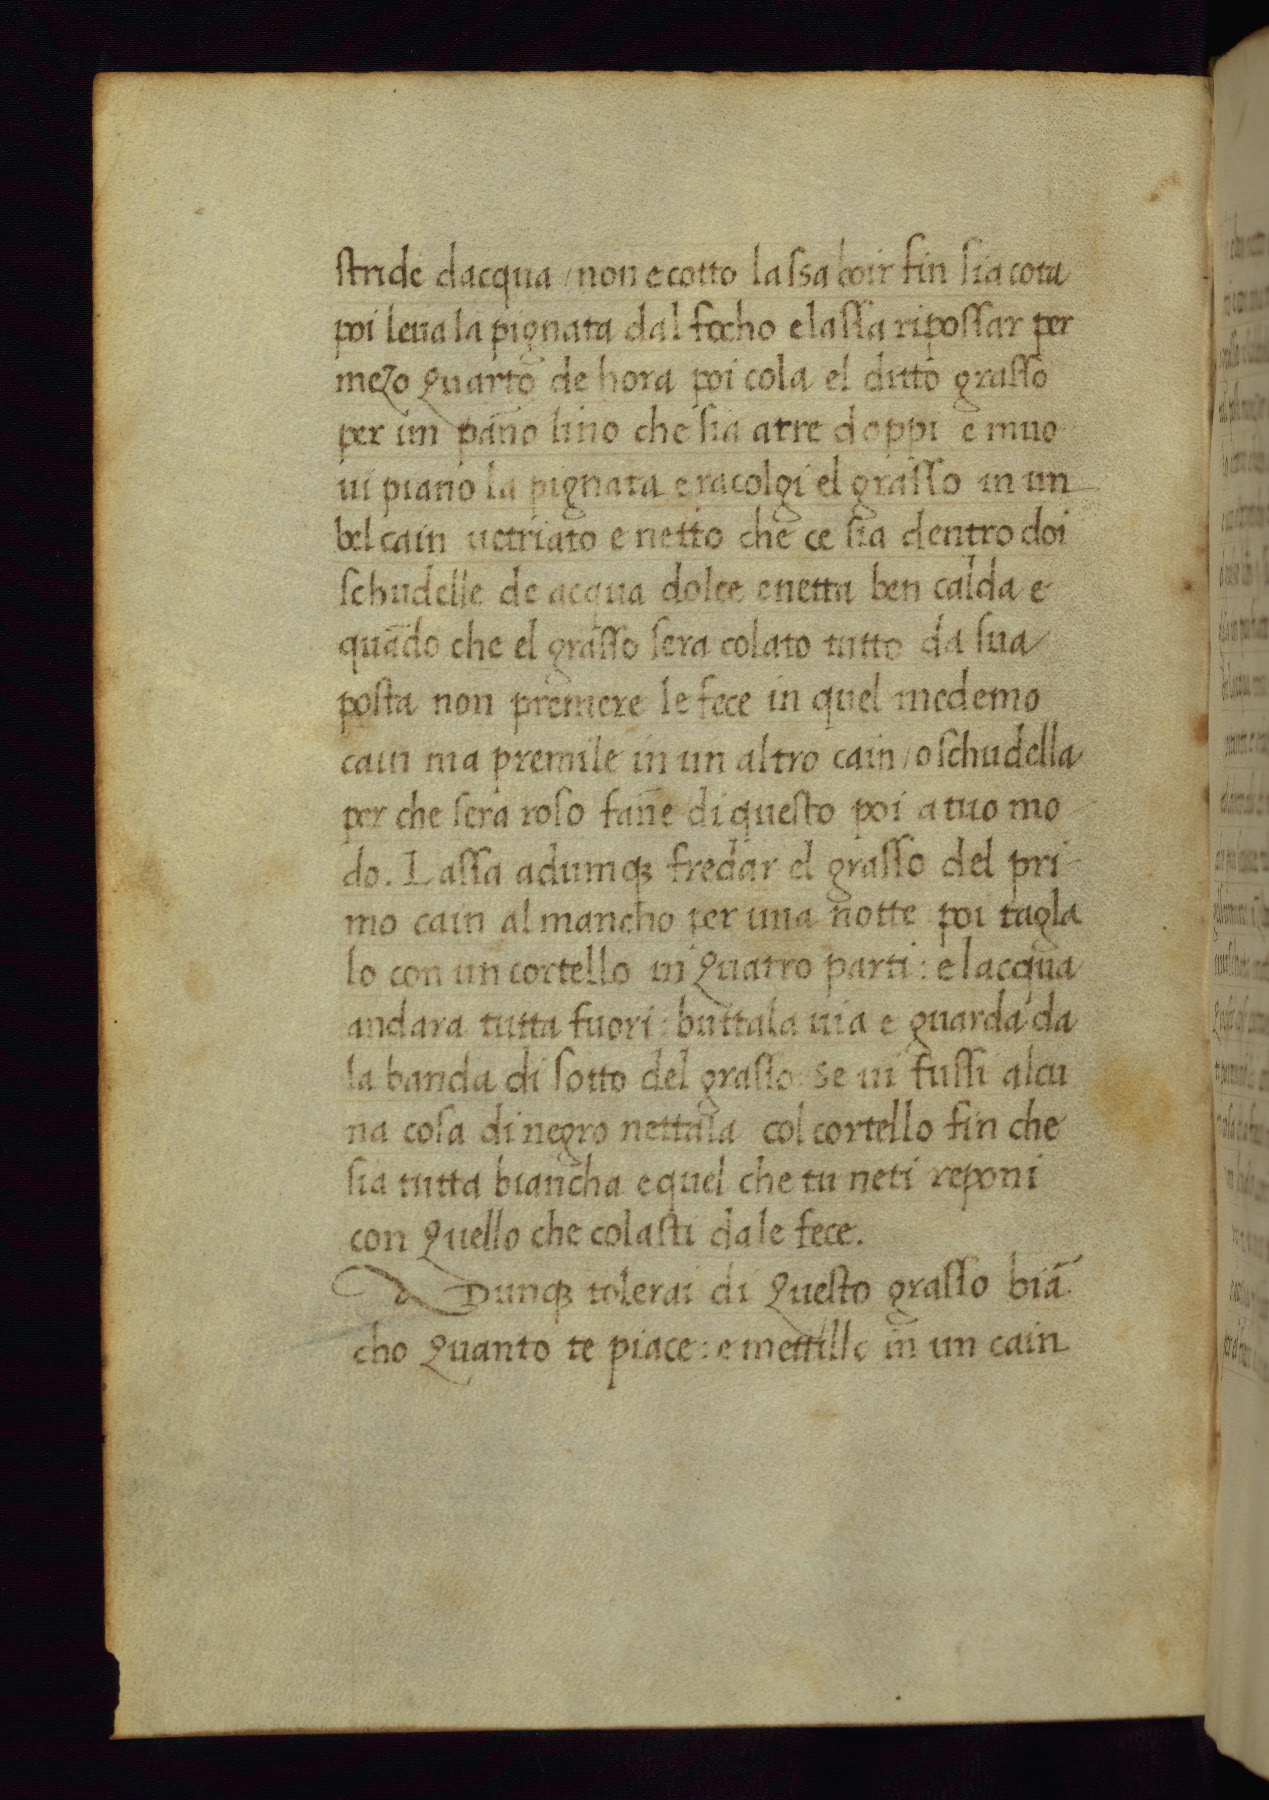 stride dacqua / non e cotto lassa boir fin sia cota
poi leua la pignata dal focho e lassa ripossar per
mezo quarto de hora poi cola el ditto grasso
per un pāno lino che sia a tre doppi e muo
ui piano la pignata e racolgi el grasso in un
bel cain uetriato e netto che ce sia dentro doi
schudelle de acqua dolce e netta ben calda e
quādo che el grasso sera colato tutto da sua
posta non premere le fece in quel medemo
cain ma premile in un altro cain / o schudella
per che sera roso fāne di questo poi a tuo mo
do. Lassa adumqꝫ fredar el grasso del pri
mo cain al mancho per una notte poi tagla
lo con un cortello in quatro parti : e lacqua
andara tutta fuori : buttala uia e guarda da
la banda di sotto del grasso : se ui fussi alcu
na cosa di negro nettala col cortello fin che
sia tutta biancha e quel che tu neti reponi
con quello che colasti da le fece.
A Dunqꝫ tolerai di questo grasso biā
cho quanto te piace : e mettillo in un cain